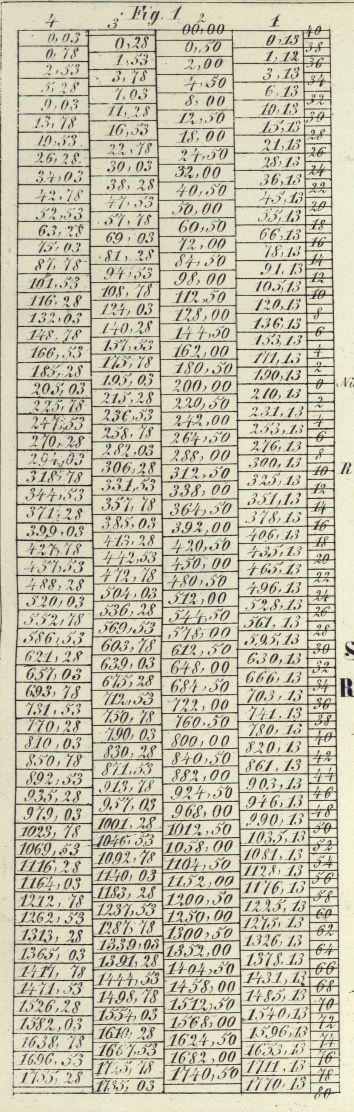 Fig. 1
4 3 2 1
0,03 0,28 00,00 0,13 40
0,78 1,53 0,50 1,12 38
2,53 3,78 2,00 3,13 36
5,28 7,03 4,50 6,13 34
9,03 11,28 8,00 10,13 32
13,78 16,53 12,50 15,13 30
19,53 22,78 18,00 21,13 28
26,28 30,03 24,50 28,13 26
34,03 38,28 32,00 36,13 24
42,78 47,53 40,50 45,13 22
52,53 57,78 50,00 55,13 20
63,28 69,03 60,50 66,13 18
75,03 81,28 72,00 78,13 16
87,78 94,53 84,50 91,13 14
101,53 108,78 98,00 105,13 12
116,28 124,03 112,50 120,13 10
132,03 140,28 128,00 136,13 8
148,78 157,53 144,50 153,13 6
166,53 175,78 162,00 171,13 4
185,28 195,03 180,50 190,13 2
205,03 215,28 200,00 210,13 0
225,78 236,53 220,50 231,13 2
247,53 258,78 242,00 253,13 4
270,28 282,03 264,50 276,13 6
294,03 306,28 288,00 300,13 8
318,78 331,53 312,50 325,13 10 R
344,53 357,78 338,00 351,13 12
371,28 385,03 364,50 378,13 14
399,03 413,28 392,00 406,13 16
427,78 442,53 420,50 435,13 18
457,53 472,78 450,00 465,13 20
488,28 504,03 480,50 496,13 22
520,03 536,28 512,00 528,13 24
552,78 569,53 544,50 561,13 26
586,53 603,78 578,00 595,13 28
621,28 639,03 612,50 630,13 30 S
657,03 675,28 648,00 666,13 32
693,78 712,53 684,50 703,13 34 R
731,53 750,78 722,00 741,13 36
770,28 790,03 760,50 780,13 38
810,03 830,28 800,00 820,13 40
850,78 871,53 840,50 861,13 42
892,53 913,78 882,00 903,13 44
935,28 957,03 924,50 946,13 46
979,03 1001,28 968,00 990,13 48
1023,78 1046,53 1012,50 1035,13 50
1069,53 1092,78 1058,00 1081,13 52
1116,28 1140,03 1104,50 1128,13 54
1164,03 1183,28 1152,00 1176,13 56
1212,78 1237,53 1200,50 1225,13 58
1262,53 1287,78 1250,00 1275,13 60
1313,28 1339,03 1300,50 1326,13 62
1365,03 1391,28 1352,00 1378,13 64
1417,78 1444,53 1404,50 1431,13 66
1471,53 1498,78 1458,00 1485,13 68
1526,28 1554,03 1512,50 1540,13 70
1582,03 1610,28 1568,00 1596,13 72
1638,78 1667,53 1624,50 1653,13 74
1696,53 1725,78 1682,00 1711,13 76
1755,28 1735,03 1740,50 1770,13 78
80